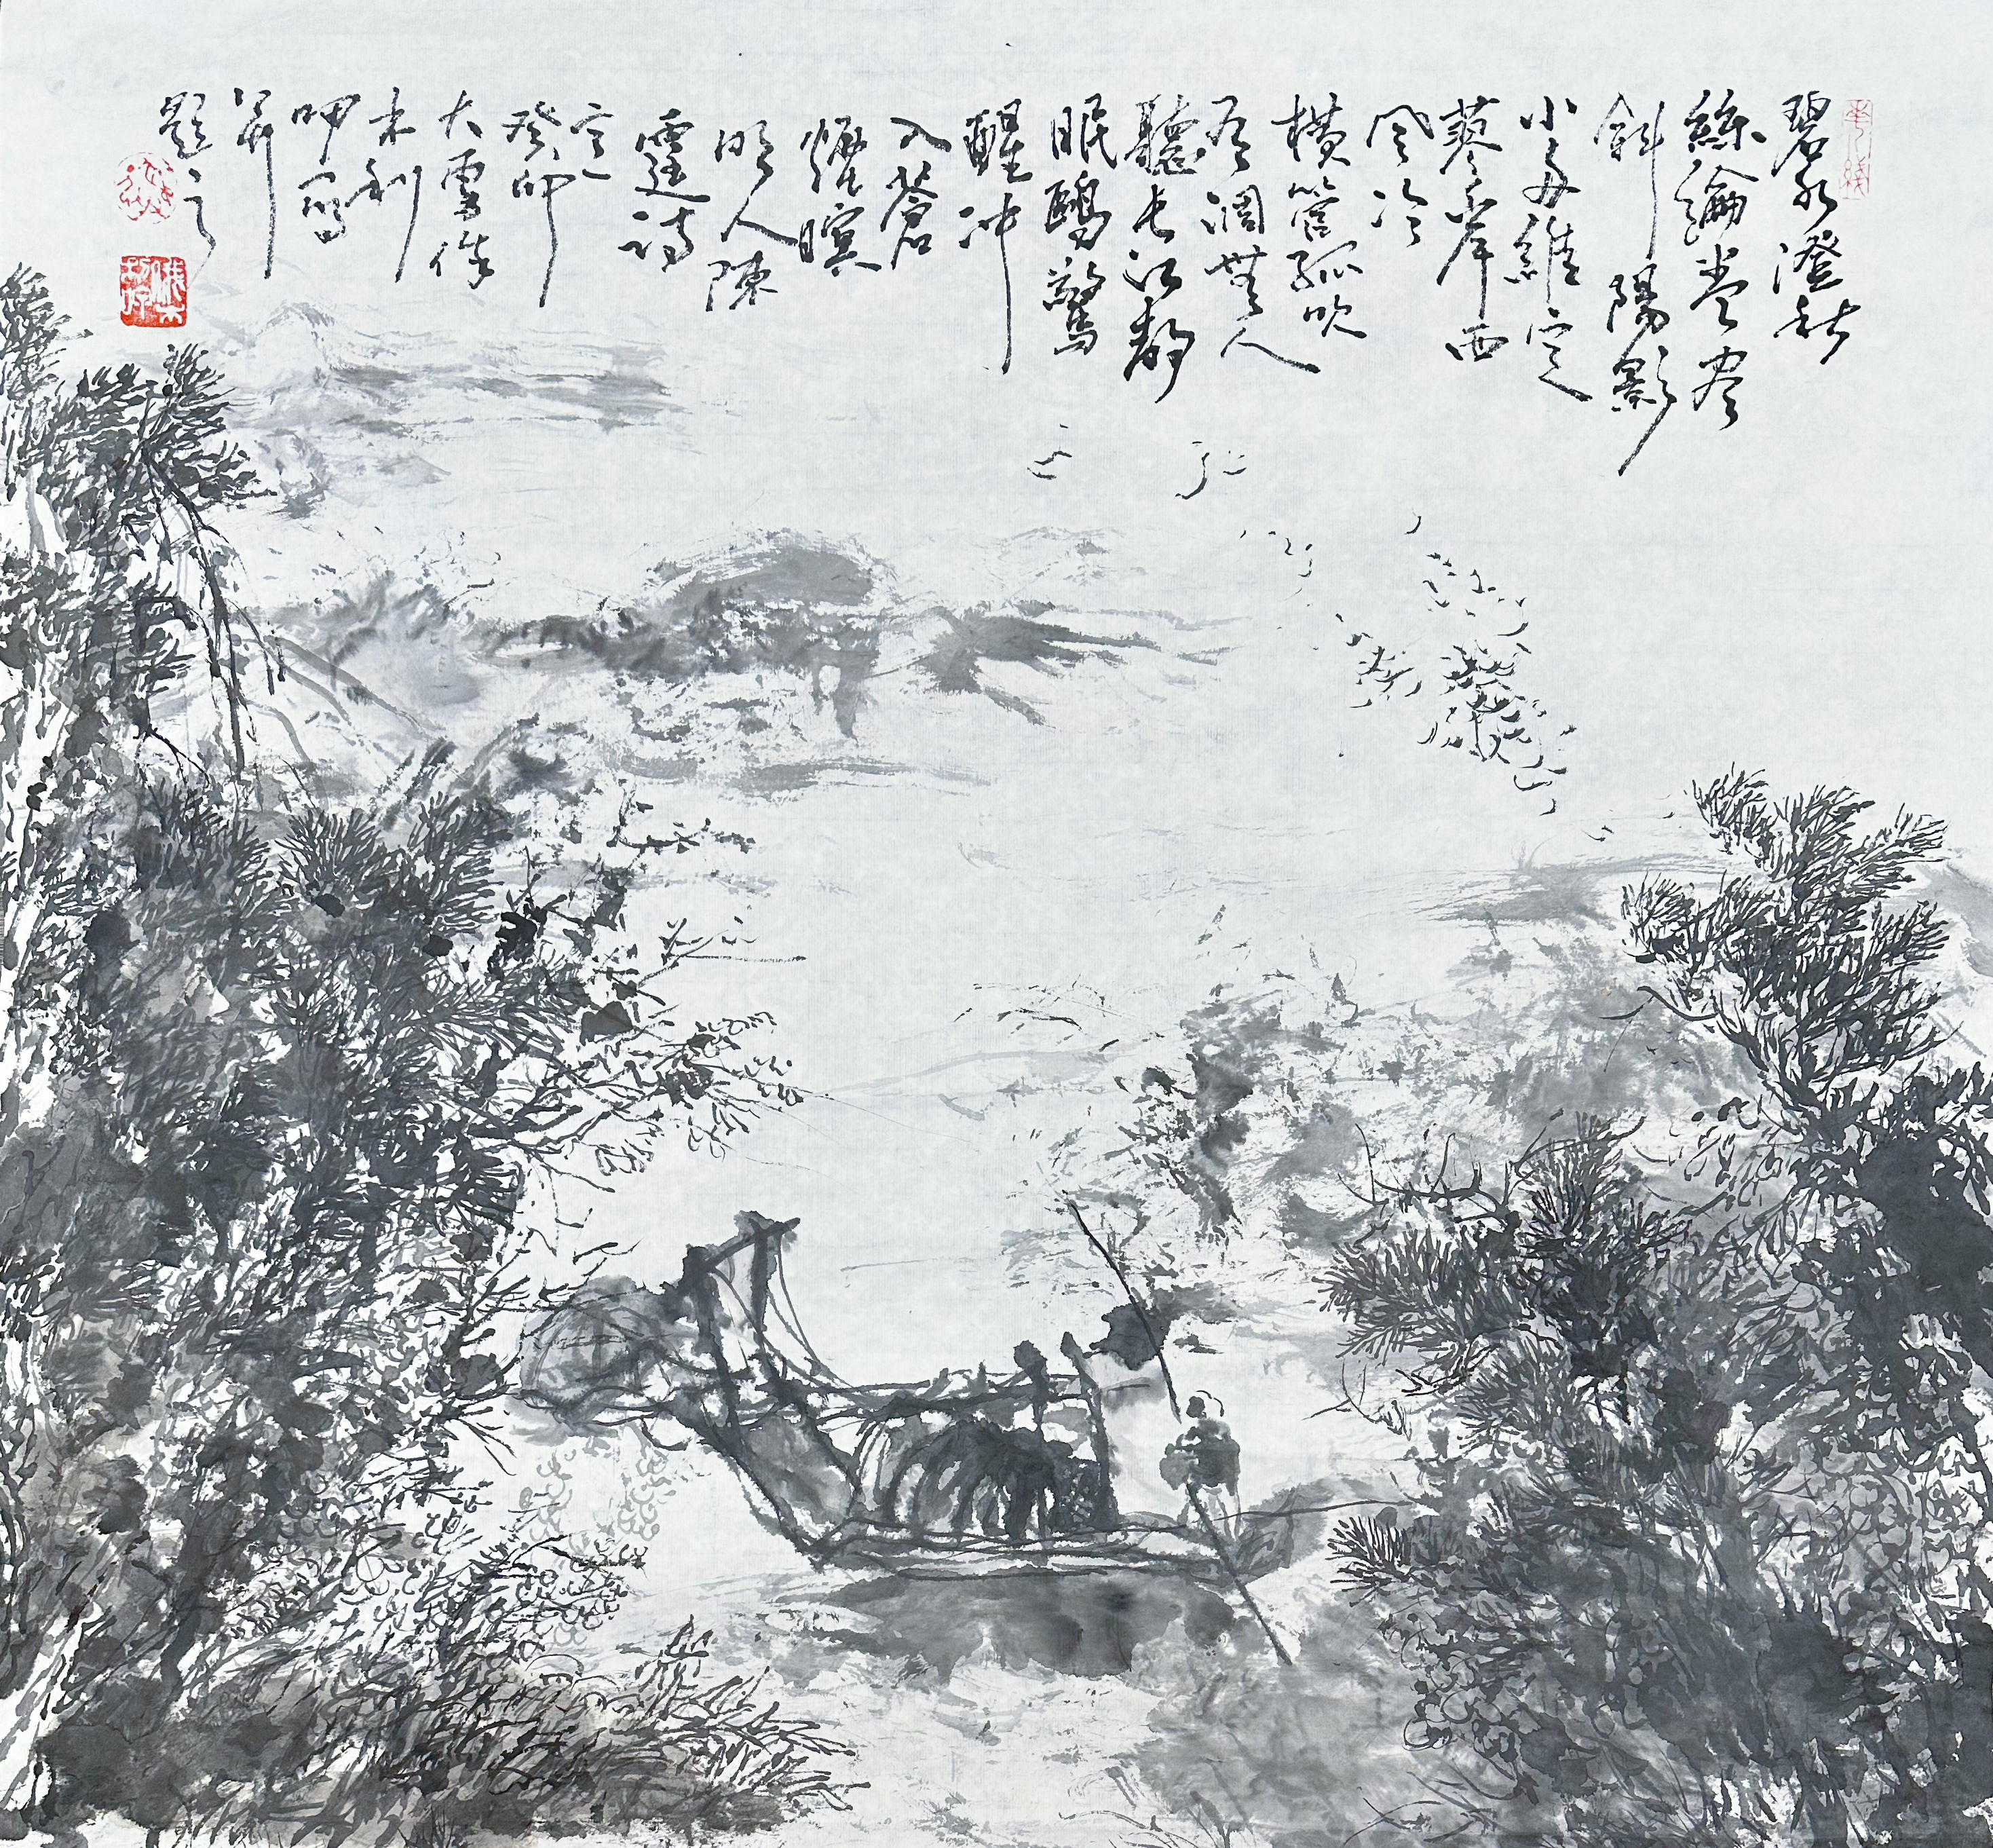 碧水澄秋
絲綸卷尽
斜陽影
小舟維定
蓼岸西
風冷
横管孤吹
無人
聽長江静
眠鷗驚
醒冲
入蒼
煙暝
明人陳
霆詩
癸卯
大雪後
木利
呷寫
并
題之